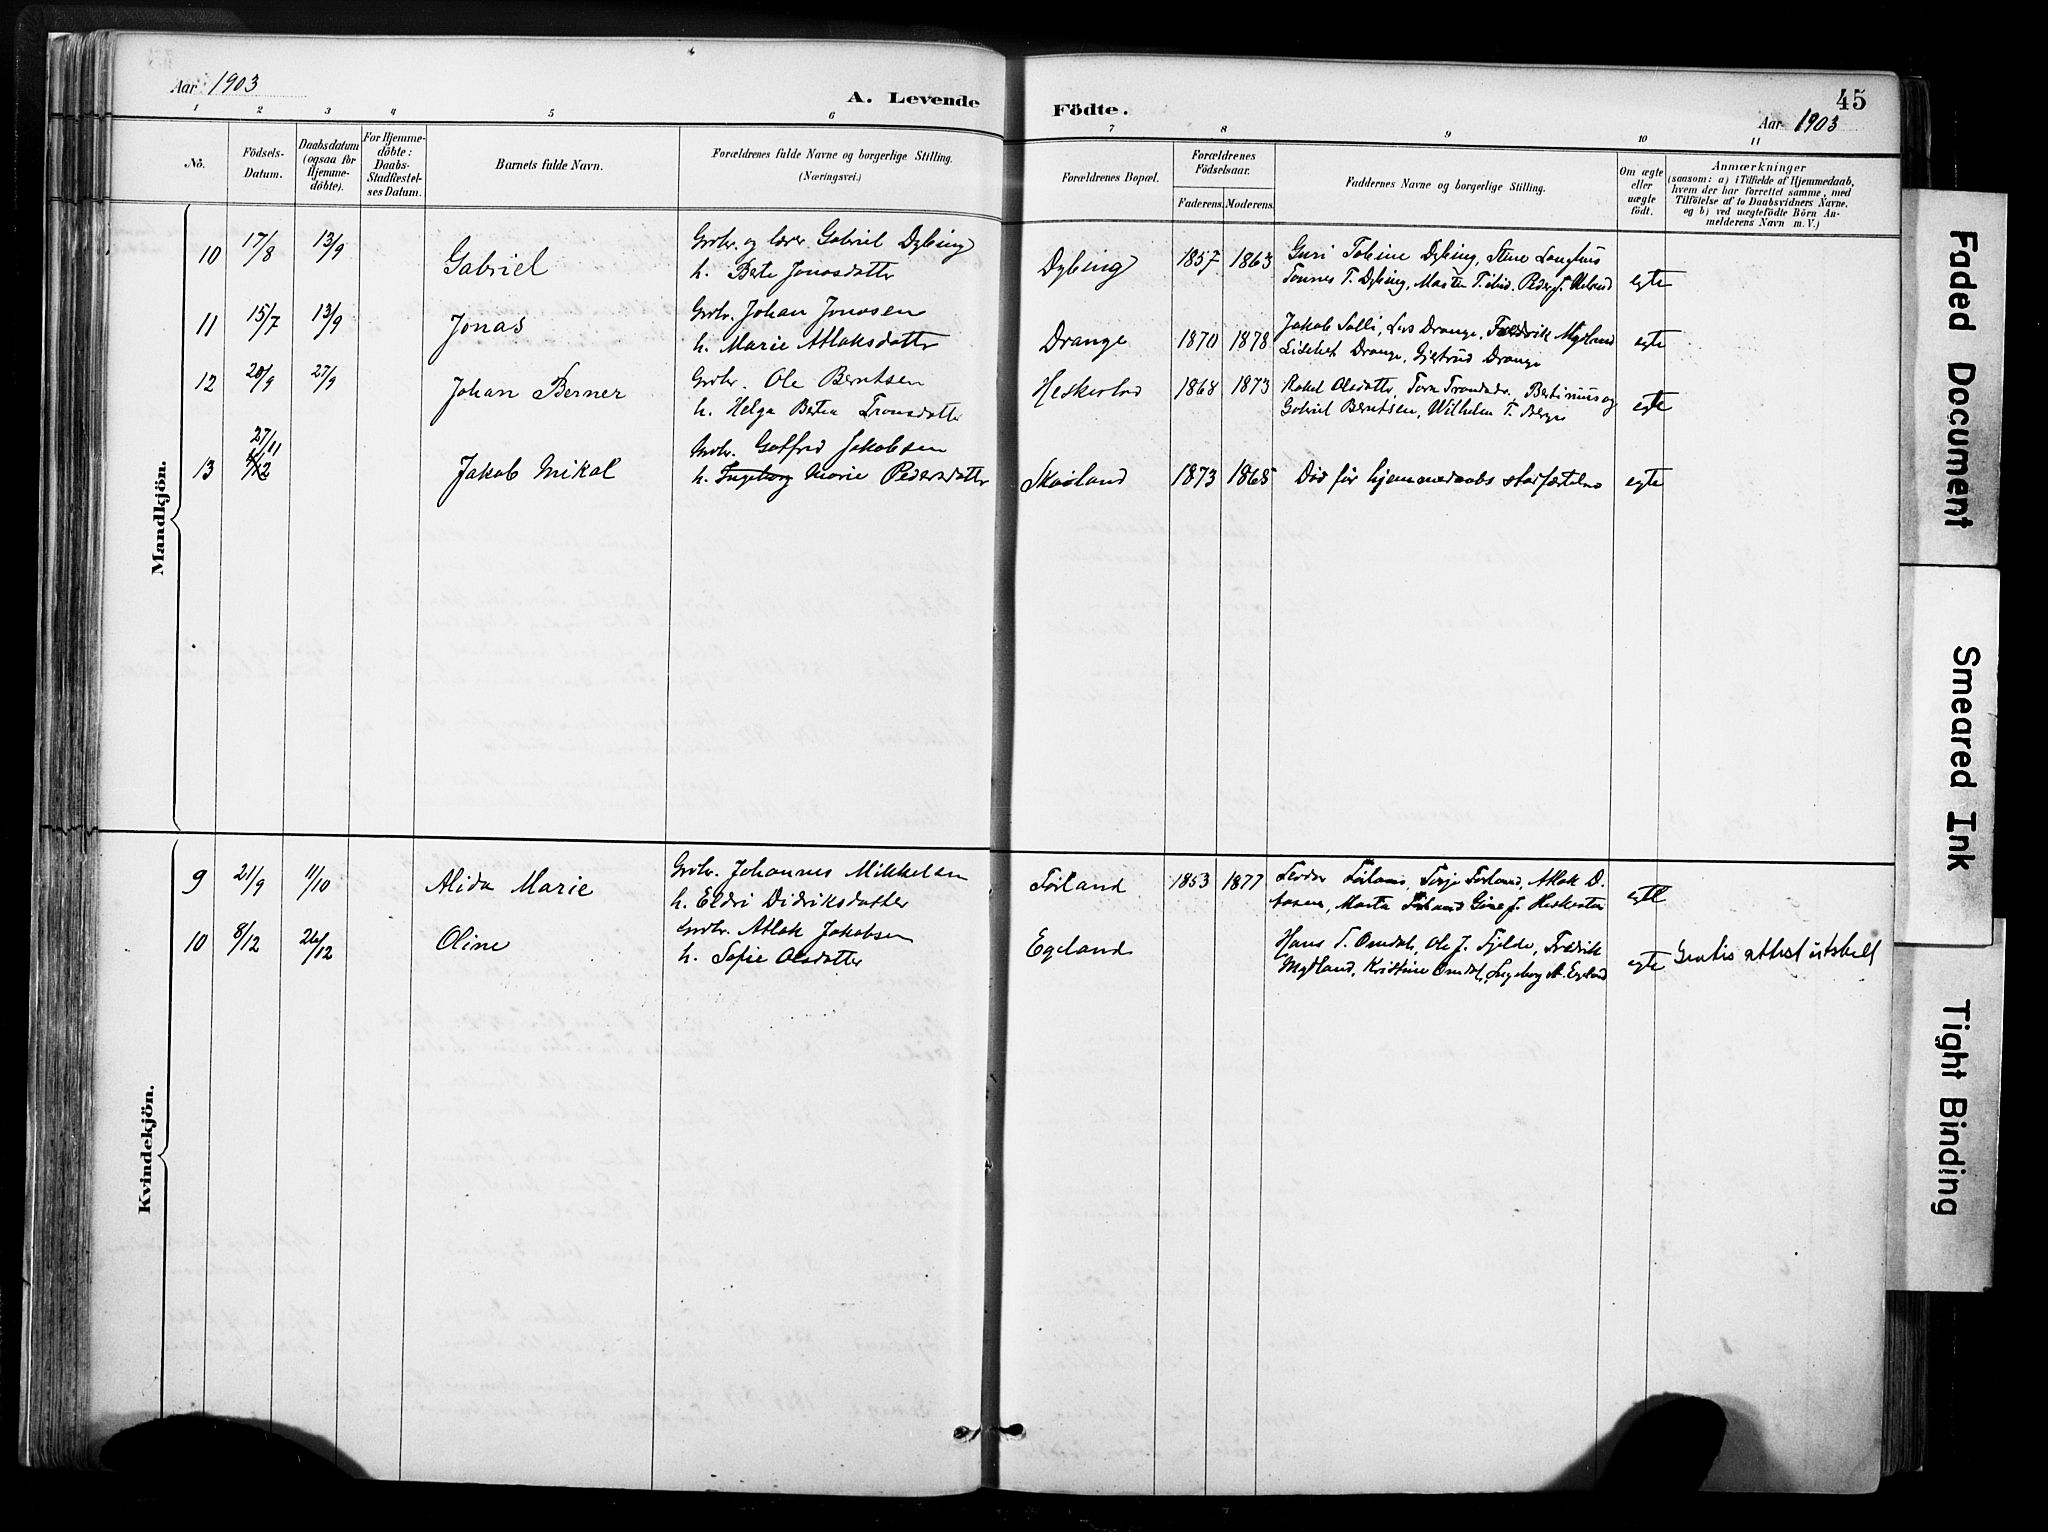 Aar 1903
A. Levende Födte.
45
Aar 1903
1 2 3 4 5 6 7 8 9 10 11
Nö.
Födsels-Datum.
Daabsdatum (ogsaa for Hjemmedöbte).
For Hjemmedöbte: Daabs-Stadfæstelses Datum.
Barnets fulde Navn.
Forældrenes fulde Navne og borgerlige Stilling. (Næringsvei.)
Forældrenes Bopæl.
Forældrenes Födselsaar.
Faderens. Moderens.
Faddernes Navne og borgerlige Stilling.
Om ægte eller uægte födt.
Anmærkninger
(saasom: a) i Tilfælde af Hjemmedaab,
hvem der har forrettet samme, med
Tilföielse af to Daabsvidners Navne.
og b) ved uægtefödte Börn An-
melderens Navn m. V.)
Mandkjön.
10 17/8 13/9 Gabriel Grdbr. og lærer Gabriel Dybing
h. Berte Jonasdatter Dybing 1857 1863 Guri Tobine Dybing, Stine Langhus
Tonnes T. Dybing, egte
11 15/7 13/9 Jonas Grdbr. Johan Jonasen
h. Marie Atlaksdatter Drange 1870 1878 Jakob Salli, Lars Drange, Fredrik Mydland
Lisebet Drange, Gjertrud Drange egte
12 20/9 27/9 Johan Berner Grdbr. Ole Berntsen
h. Helga Bertea Tronsdatter Heskestad 1868 1873 Rakel Olsdatter, Bertinius og
Gabriel Berntsen, Wilhelm T. Berge egte
13 27/11 Jakob Mikal Grdbr. Gotfred Jakobsen
h. Ingeborg Marie Pedersdatter Skaaland 1873 1865 Död för hjemmedaabs stadfæstelse egte
Kvindekjön.
9 21/9 11/10 Alida Marie Grdbr. Johannes Mikkelsen
h. Eldri Didriksdatter Förland 1853 1877 Förland, Terje Förland, Atlak D.
Marta Förland egte
10 8/12 26/12 Oline Grdbr. Atlak Jakobsen
h. Sofie Olsdatter Egeland Hans T. Omdal, Ole J. Fjelde, Fredrik
Mydland, Kristine Omdal, Ingeborg A. Egeland egte Gratis attest utstedt
Faded Document
Smeared Ink
Tight Binding